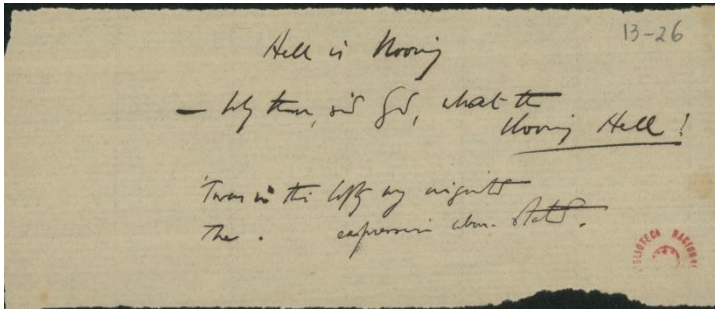 13-26
Hell is blooming
— Why then, said God, what the
blooming Hell!
'Twas in this lofty way originated
The . expression above stated.
BIBLIOTECA NACIONAL